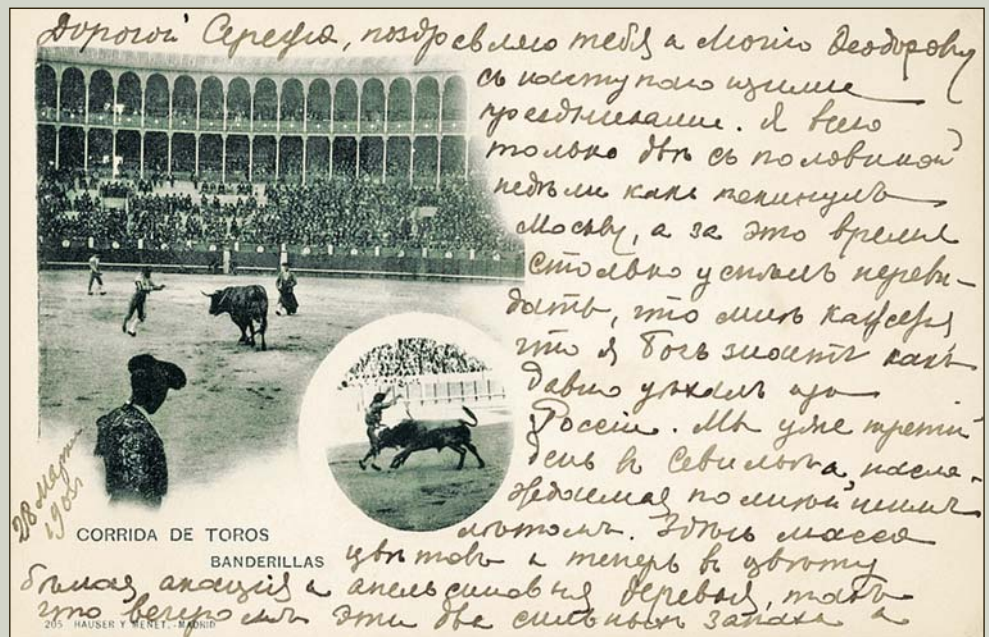 Дорогой Сережа, поздравляю тебя и Федоровну
съ наступающими
праздниками. Я всего
только двѣ съ половиной
недѣли какъ покинулъ
Москву, а за это время
столько успѣлъ переви-
дать, что мнѣ кажется
что я Богъ знаетъ какъ
давно уѣхалъ изъ
Россiи. Мы уже третiй
день в Севильѣ, насла-
ждаемся
лѣтомъ. Здѣсь масса
цвѣтовъ и теперь в цвѣту
бѣлая акацiя и апельсиновыя деревья, такъ
что вечеромъ эти два сильныхъ запаха и
28 Марта
CORRIDA DE TOROS
BANDERILLAS
205 HAUSER Y MENET.-MADRID